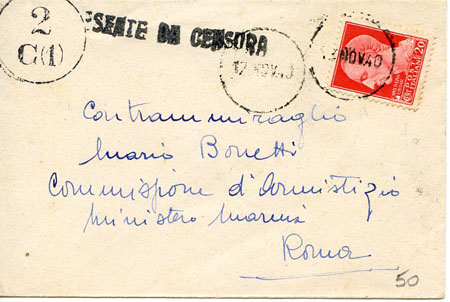 2
C(1)
ESENTE DA CENSORA
17 NOV.40
NOV.40
CENT 20
Contrammiraglio
Mario Bonetti
Commissione d'Armistizio
Ministero Marina
Roma
50